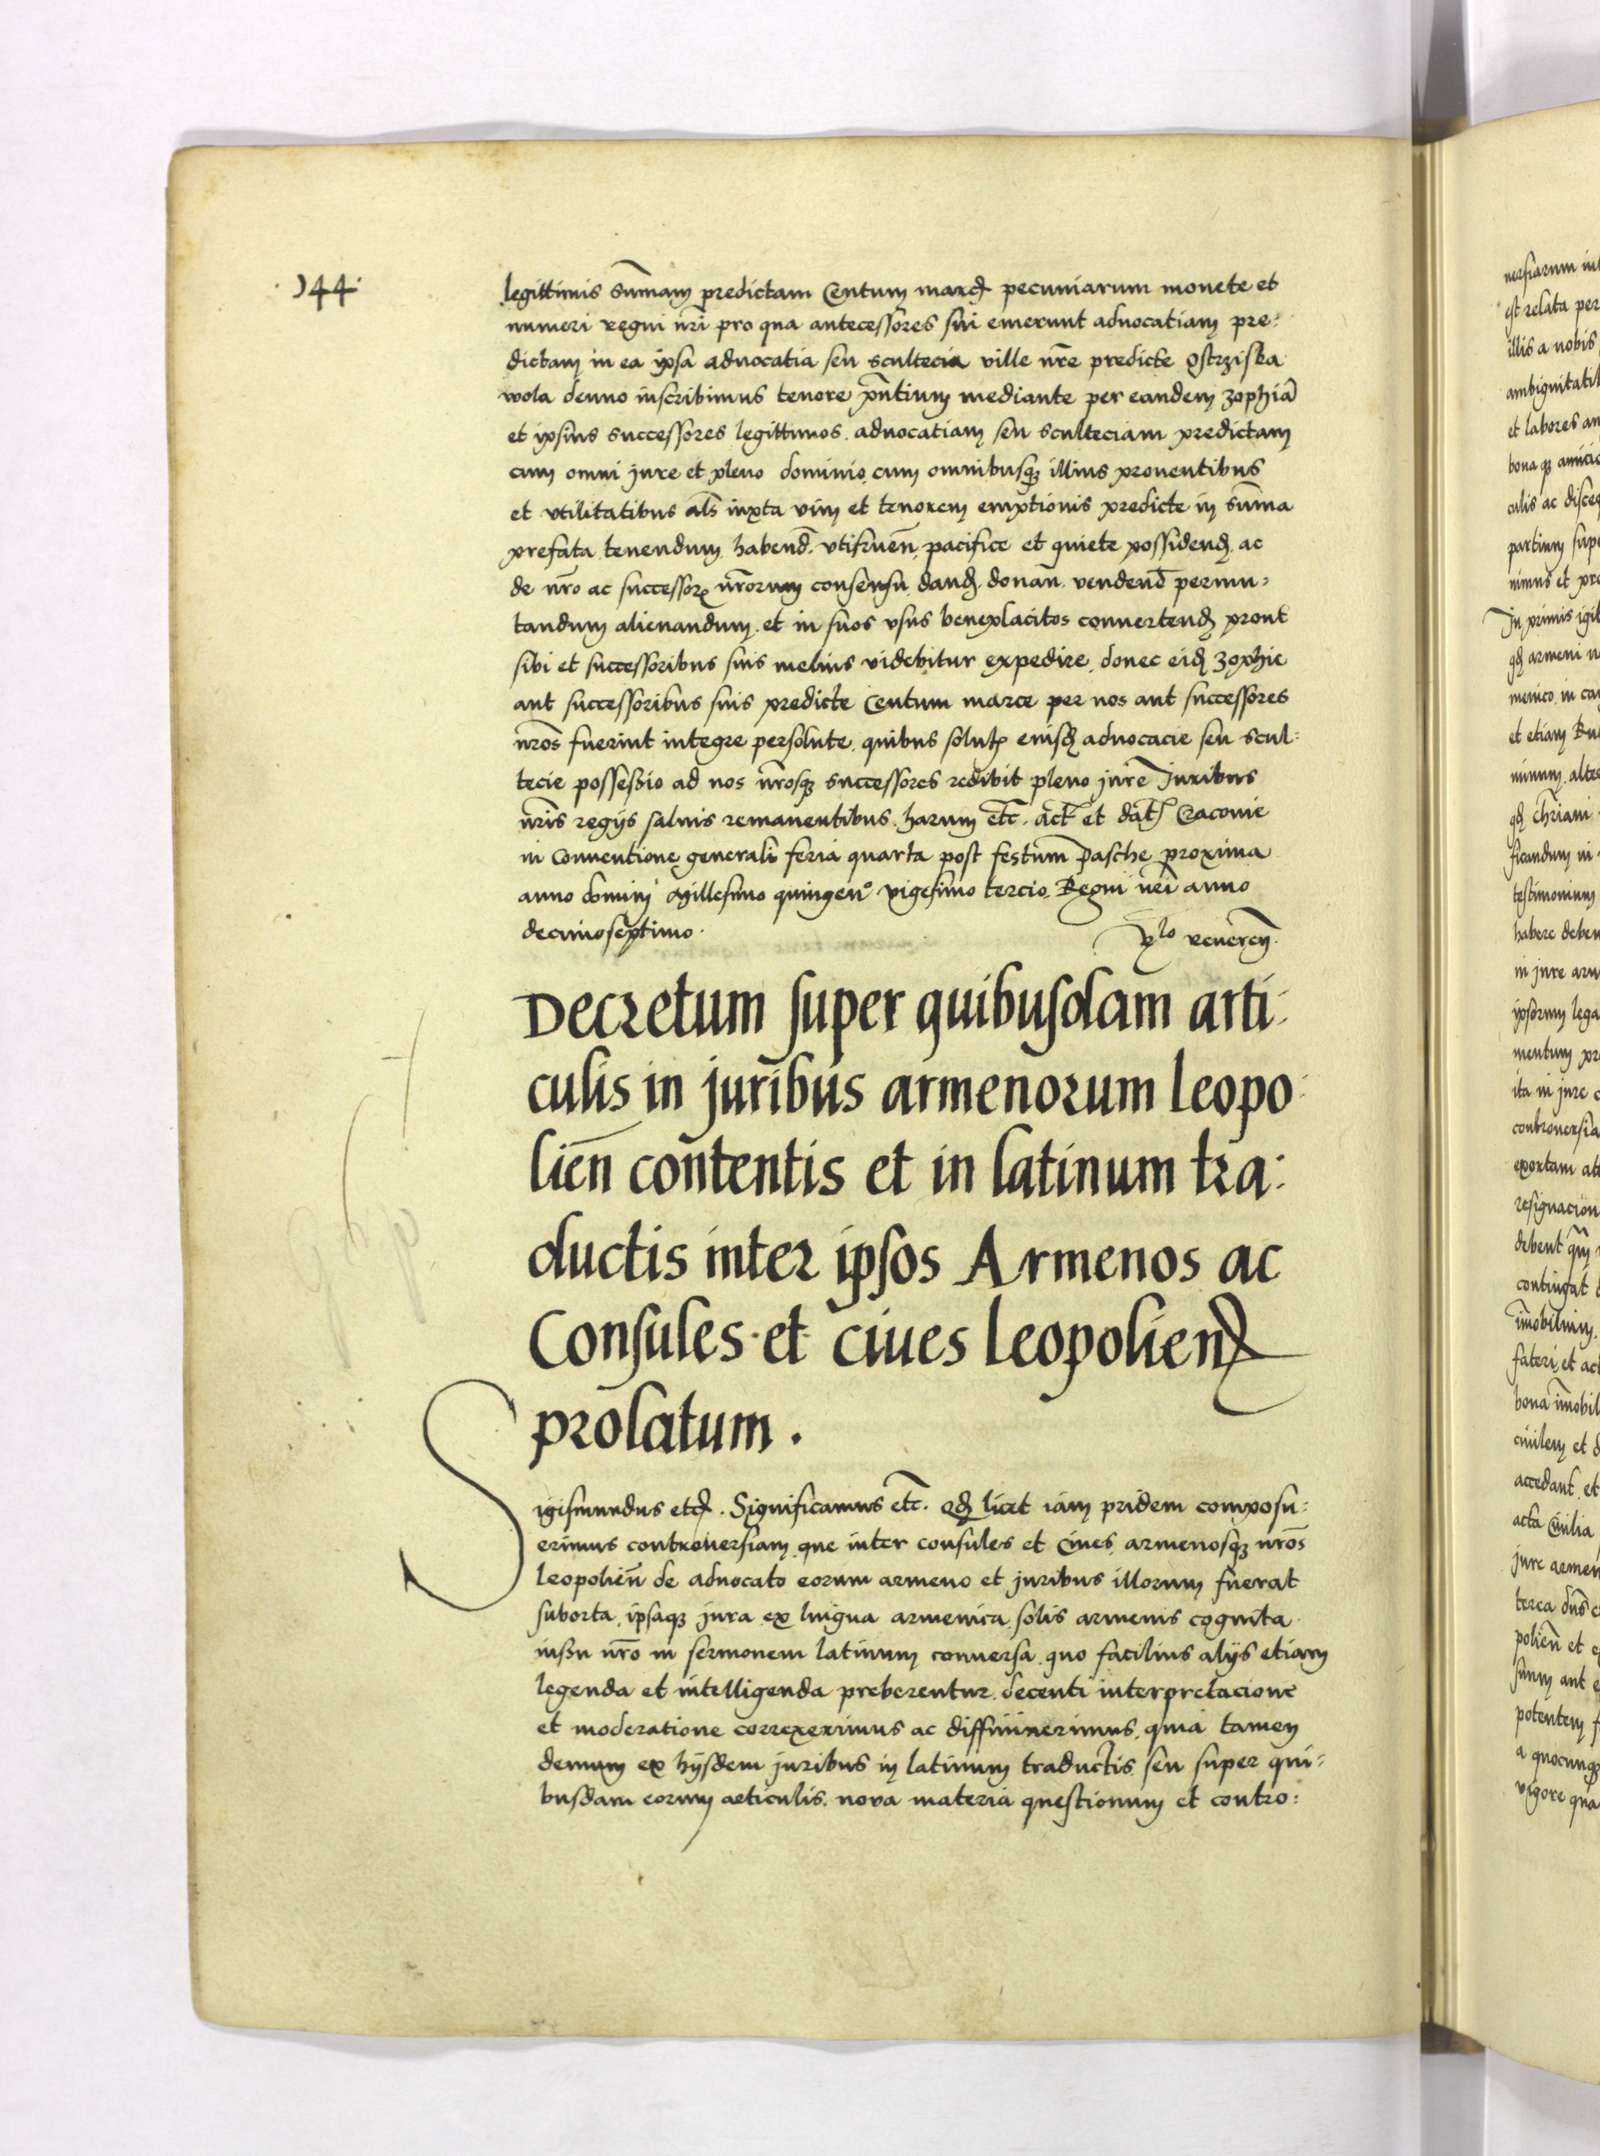 144
legittimis sum̄am predictam Centum marcꝭ pecuniarum monete et
numeri regni nr̄i pro qua antecessores sui emerunt aduocatiam pre-
dictam in ea ipsa aduocatia seu scultecia ville nr̄e predicte Ostrziska
wola denuo inscribimus tenore pn̄tium mediante per eandem zophiā
et ipsius successores legittimos aduocatiam seu sculteciam predictam
cum omni jure et pleno dominio cum omnibusqꝫ illius prouentibus
et vtilitatibus al̄s iuxta vim et tenorem emptionis predicte in sum̄a
prefata tenendum habend̄ vtifruen̄ pacifice et quiete possidendꝭ ac
de nr̄o ac successorꝝ nr̄orum consensu dandꝭ donan̄ vendend̄ permu-
tandum alienandum et in suos vsus beneplacitos conuertendꝭ prout
sibi et successoribus suis melius videbitur expedire donec eidꝭ zophie
aut successoribus suis predicte Centum marce per nos aut successores
nr̄os fuerint integre persolute quibus solutꝭ eiusdꝭ aduocacie seu scul-
tecie possessio ad nos nr̄osqꝫ successores redibit pleno jure Juribus
nr̄is regijs saluis remanentibus harum etc̄. act̄ et dat̄ Cracouie
in Conuentione generali feria quarta post festum Pasche proxima
anno domini Millesimo quingenº vigesimo tercio Regni nr̄i anno
decimoseptimo.
Rlo reueren̄
Decretum super quibusdam arti-
culis in juribus armenorum leopo-
lien̄ contentis et in latinum tra-
ductis inter ipsos Armenos ac
Consules et ciues leopoliendꝭ
prolatum.
Sigismundus etcꝭ. Significamus etc̄. qdꝭ licet iam pridem composu-
erimus controuersiam que inter consules et Ciues armenosqꝫ nr̄os
leopolien̄ de aduocato eorum armeno et juribus illorum fuerat
suborta ipsaqꝫ jura ex lingua armenica solis armenis cognita
iussu nr̄o in sermonem latinum conuersa quo facilius alijs etiam
legenda et intelligenda preberentur decenti interpretacione
et moderatione correxerimus ac diffiniuerimus quia tamen
demum ex hijsdem juribus in latinum traductis seu super qui-
busdam eorum articulis noua materia questionum et contro-